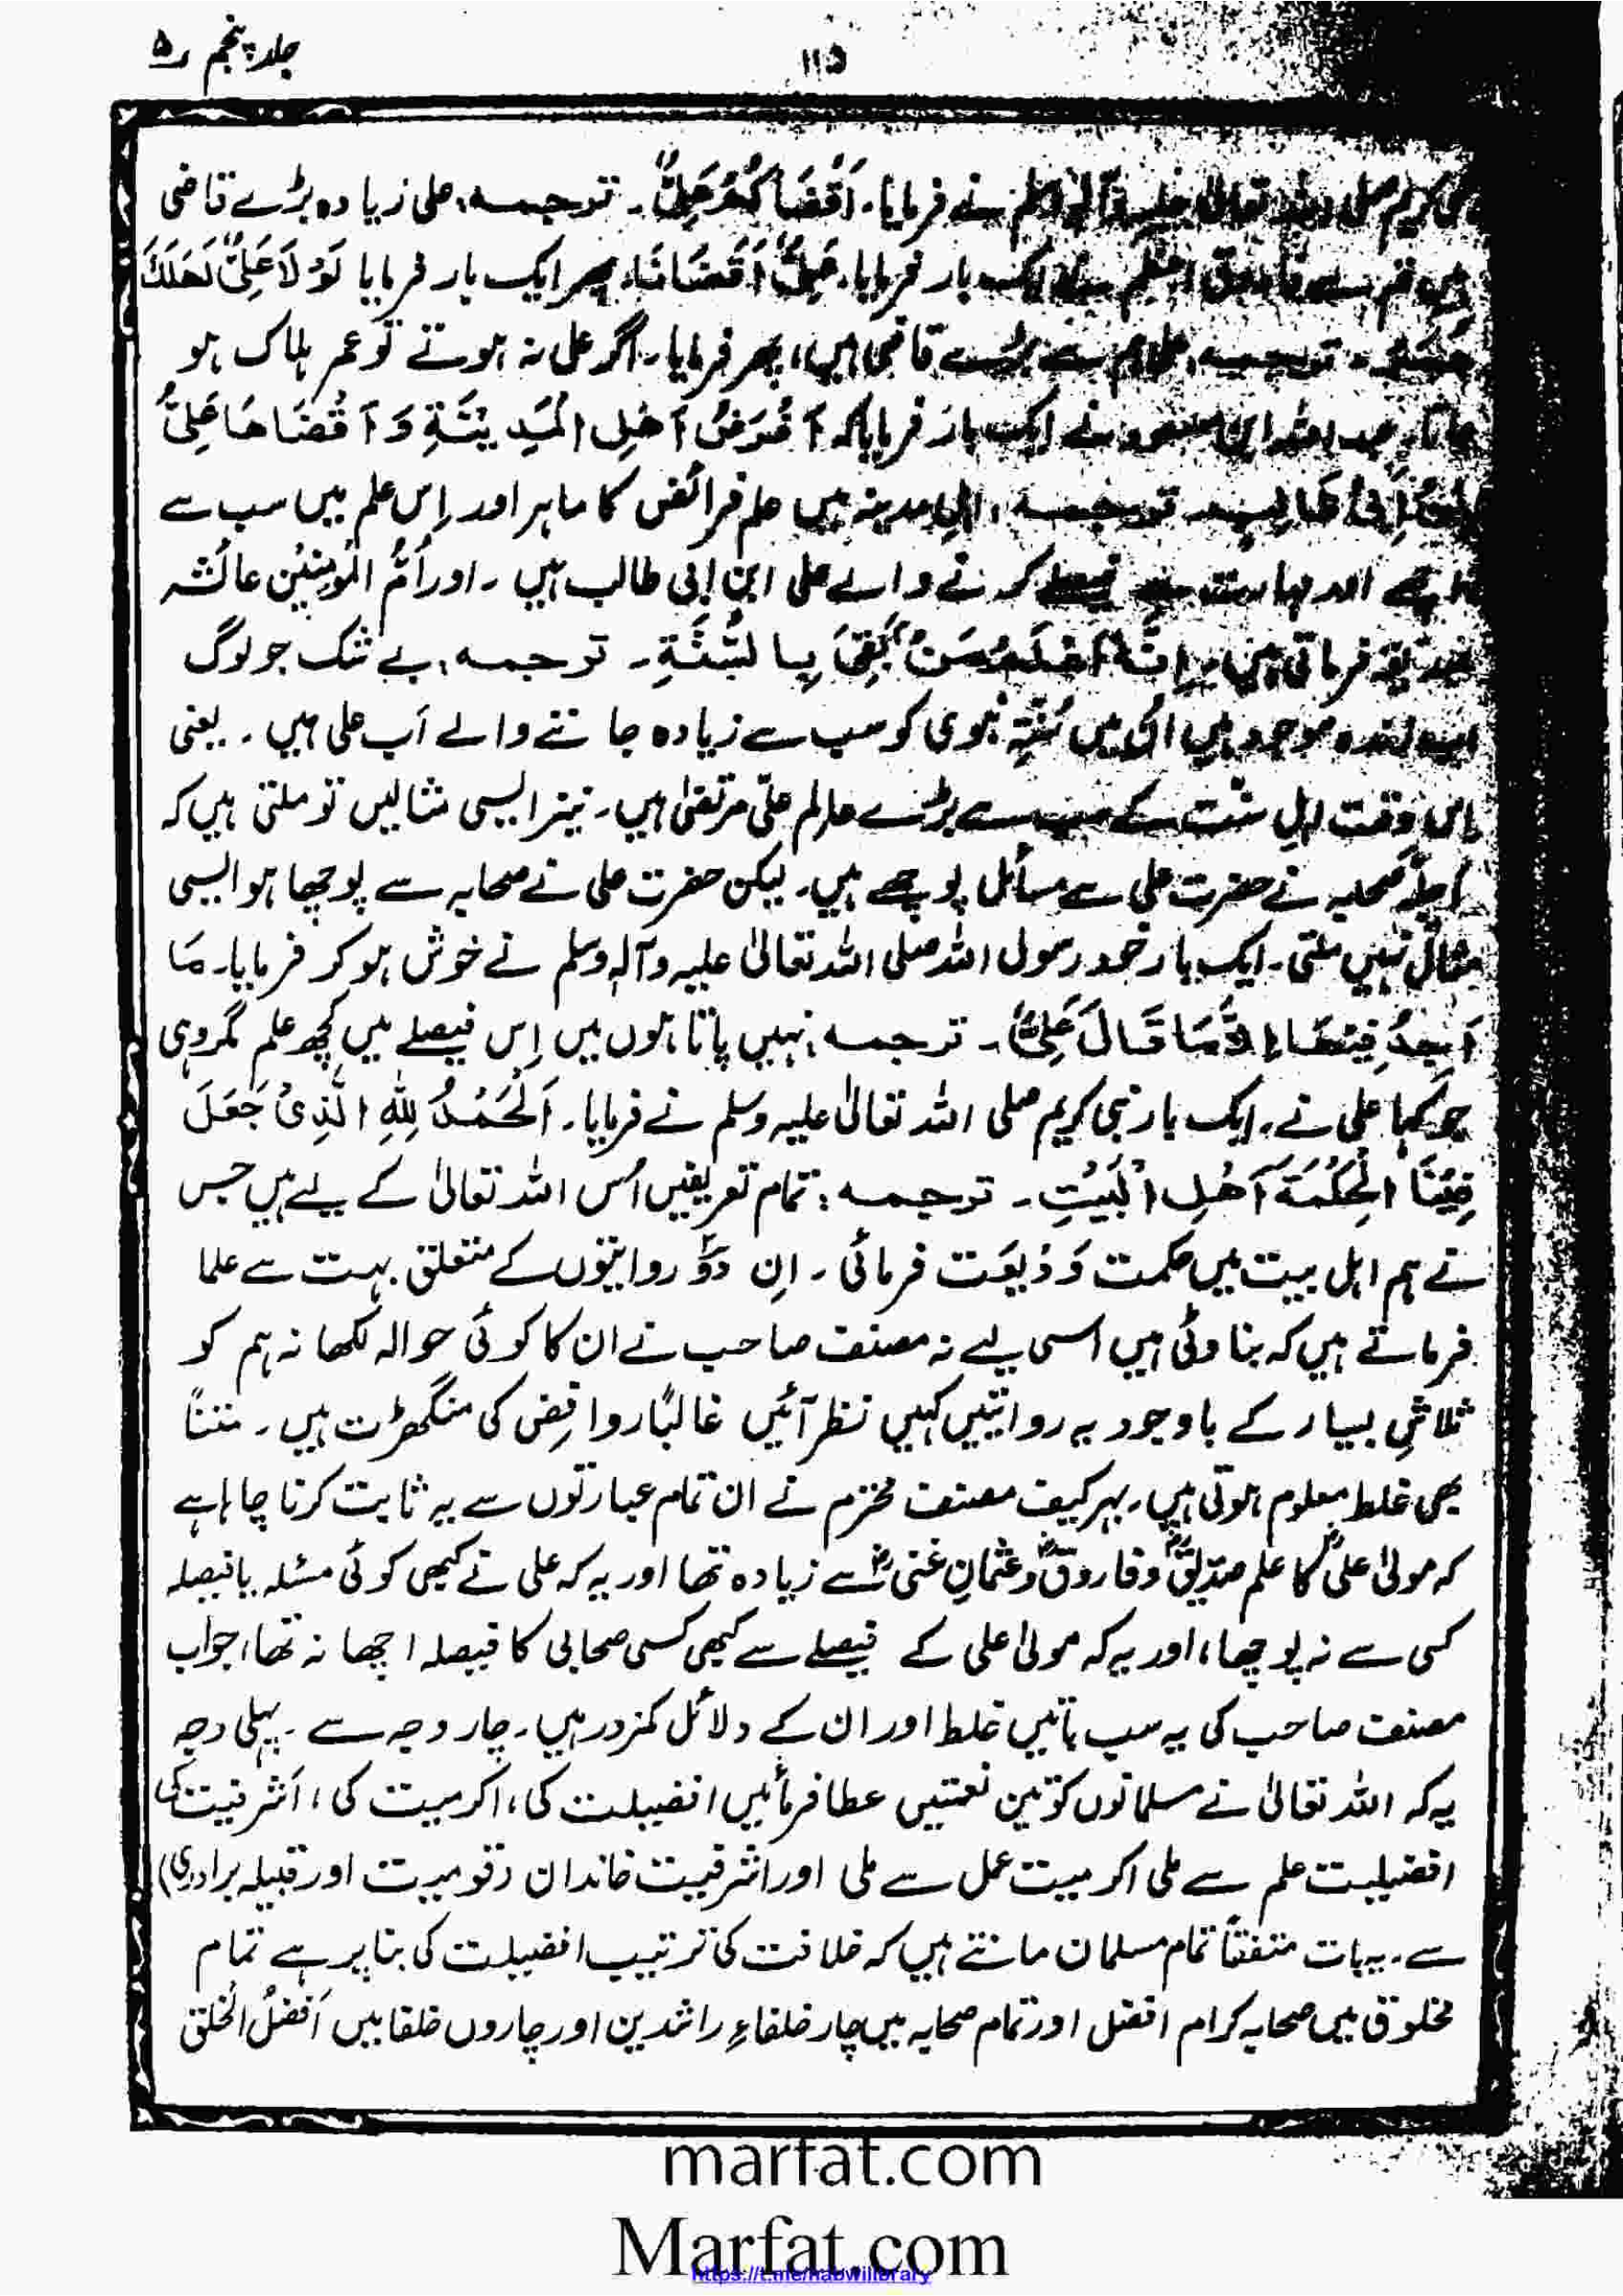 جلد پنجم ۵
۱۱۵
نے فرمایا۔ اَقْضَاكُمْ عَلِىٌّ۔ ترجمہ: علی زیادہ بڑے قاضی
ایک بار فرمایا۔ عَلِىٌّ اَقْضَانَا۔ پھر ایک بار فرمایا لَوْلَا عَلِىٌّ لَهَلَكَ
ترجمہ علی ہم سے بڑے قاضی ہیں، پھر فرمایا۔ اگر علی نہ ہوتے تو عمر ہلاک ہو
جاتا۔ عبد اللہ ابن مسعود نے ایک بار فرمایا کہ اَفْرَضُ اَهْلِ الْمَدِيْنَةِ وَ اَقْضَاهَا عَلِىُّ
ابْنُ اَبِىْ طَالِبٍ۔ ترجمہ، اہلِ مدینہ میں علم فرائض کا ماہر اور اِس علم میں سب سے
فیصلے کرنے والے علی ابن ابی طالب ہیں ۔ اور اُمُّ الْمُومِنِیْن عائشہ
صدیقہ فرماتی ہیں۔ بِالسُّنَّةِ۔ ترجمہ، بے شک جو لوگ
اب زندہ موجود ہیں اُن میں سُنَّتِ نبوی کو سب سے زیادہ جاننے والے اَب علی ہیں ۔ یعنی
اِس وقت اہلِ سنّت کے سب سے بڑے عالم علی مرتضیٰ ہیں۔ نیز ایسی مثالیں تو ملتی ہیں کہ
صحابہ نے حضرت علی سے مسائل پوچھے ہیں۔ لیکن حضرت علی نے صحابہ سے پوچھا ہو ایسی
مثال نہیں ملتی۔ ایک بار خود رسول اللہ صلی اللہ تعالیٰ علیہ وآلہٖ وسلم نے خوش ہو کر فرمایا۔ مَا
اَجِدُ فِيْهَا اِلَّا مَا قَالَ عَلِىٌّ ۔ ترجمہ: نہیں پاتا ہوں میں اِس فیصلے میں کچھ علم مگر وہی
جو کہا علی نے۔ ایک بار نبی کریم صلی اللہ تعالیٰ علیہ وسلم نے فرمایا۔ اَلْحَمْدُ لِلّٰهِ الَّذِىْ جَعَلَ
فِيْنَا الْحِكْمَةَ اَهْلِ الْبَيْتِ ۔ ترجمہ: تمام تعریفیں اُس اللہ تعالیٰ کے لیے ہیں جس
نے ہم اہل بیت میں حکمت وَدِیعَت فرمائی ۔ اِن دَو روایتوں کے متعلق بہت سے علما
فرماتے ہیں کہ بناوٹی ہیں اسی لیے نہ مصنف صاحب نے ان کا کوئی حوالہ لکھا نہ ہم کو
تلاشِ بسیار کے باوجود یہ روایتیں کہیں نظر آئیں غالباً روافِض کی منگھڑت ہیں ۔ متناً
بھی غلط معلوم ہوتی ہیں۔ بہر کیف مصنف محترم نے ان تمام عبارتوں سے یہ ثابت کرنا چاہا ہے
کہ مولیٰ علیؓ کا علم صدیقؓ و فاروقؓ و عثمانِ غنیؓ سے زیادہ تھا اور یہ کہ علی نے کبھی کوئی مسئلہ یا فیصلہ
کسی سے نہ پوچھا، اور یہ کہ مولیٰ علی کے فیصلے سے کبھی کسی صحابی کا فیصلہ اچھا نہ تھا، جواب
مصنف صاحب کی یہ سب باتیں غلط اور ان کے دلائل کمزور ہیں۔ چار وجہ سے ۔ پہلی وجہ
یہ کہ اللہ تعالیٰ نے مسلمانوں کو تین نعمتیں عطا فرمائیں افضیلت کی، اکرمیت کی، اَشرفیت کی
افضیلیت علم سے ملی اکرمیت عمل سے ملی اور اشرفیت خاندان (قومیت اور قبیلہ برادری)
سے۔ یہ بات متفقاً تمام مسلمان مانتے ہیں کہ خلافت کی ترتیب افضیلت کی بنا پر ہے تمام
مخلوق میں صحابہ کرام افضل اور تمام صحابہ میں چار خلفاءِ راشدین اور چاروں خلفا میں اَفْضَلُ الْخَلق
marfat.com
Marfat.com
https://t.me/nabwilibrary